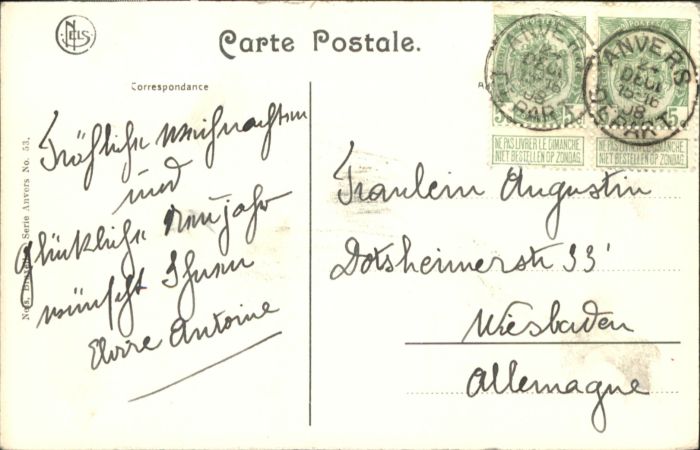 NELS
Carte Postale.
Correspondance
Fröhliche Weihnachten
und
Glückliche Neujahr
wünscht Ihnen
Elvire Antoine
Nels, Bruxelles Serie Anvers No. 53.
ANVERS
DÉC
15-16
08
DEPART
ANVERS
22
DÉC
15-16
08
DEPART
POSTES
5c
5c
NE PAS LIVRER LE DIMANCHE
NIET BESTELLEN OP ZONDAG.
NE PAS LIVRER LE DIMANCHE
NIET BESTELLEN OP ZONDAG.
Fraulein Augustin
Dotsheimerstr 33'
Wiesbaden
Allemagne